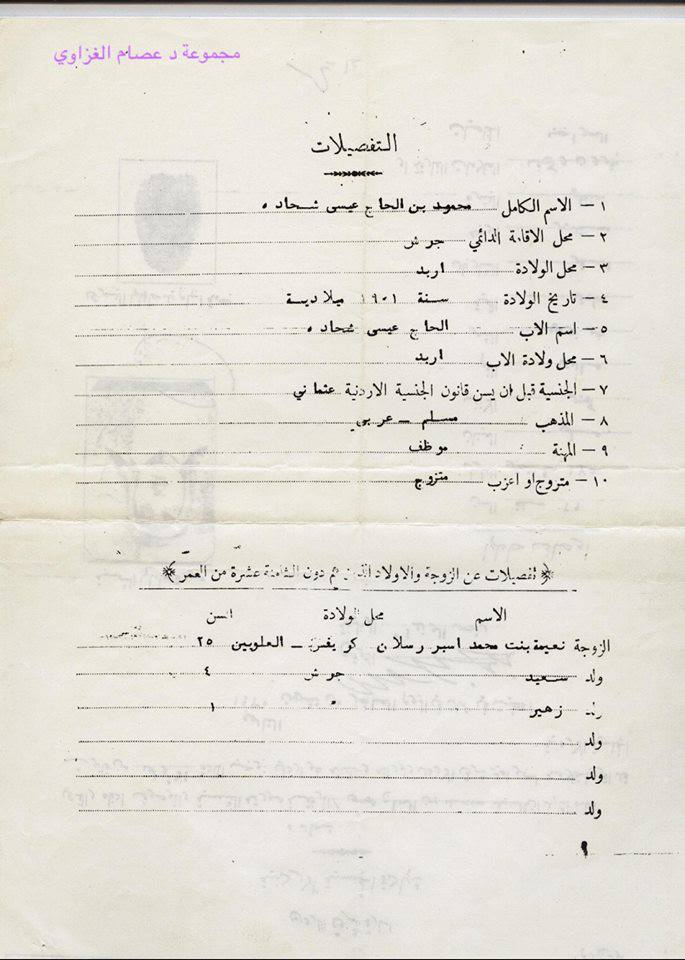 مجموعة د عصام الغزاوي
التفصيلات
١ - الاسم الكامل محمود بن الحاج عيسى شحاده
٢ - محل الاقامة الدائمي جرش
٣ - محل الولادة اربد
٤ - تاريخ الولادة سنة ١٩٠١ ميلادية
٥ - اسم الاب الحاج عيسى شحاده
٦ - محل ولادة الاب اربد
٧ - الجنسية قبل ان يسن قانون الجنسية الاردنية عثماني
٨ - المذهب مسلم - عربي
٩ - المهنة موظف
١٠ - متزوج او اعزب متزوج
تفصيلات عن الزوجة والاولاد الذين هم دون الثامنة عشرة من العمر
الاسم محل الولادة السن
الزوجة نعيمة بنت محمد اسبر رسلان - العلويين ٢٥
ولد سعيد جرش ٤
ولد زهير " ١
ولد
ولد
ولد